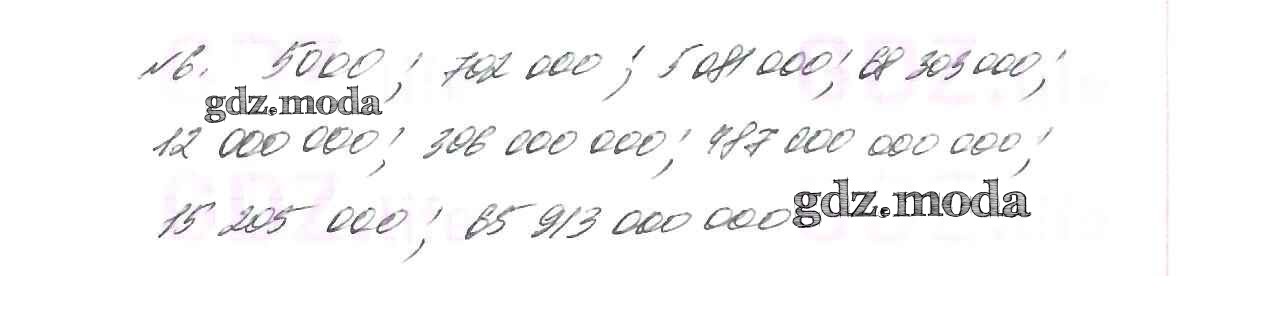 №6. 5000; 702 000; 5 081 000; 68 303 000;
gdz.moda
12 000 000; 306 000 000; 487 000 000 000;
gdz.moda
15 205 000; 65 913 000 000